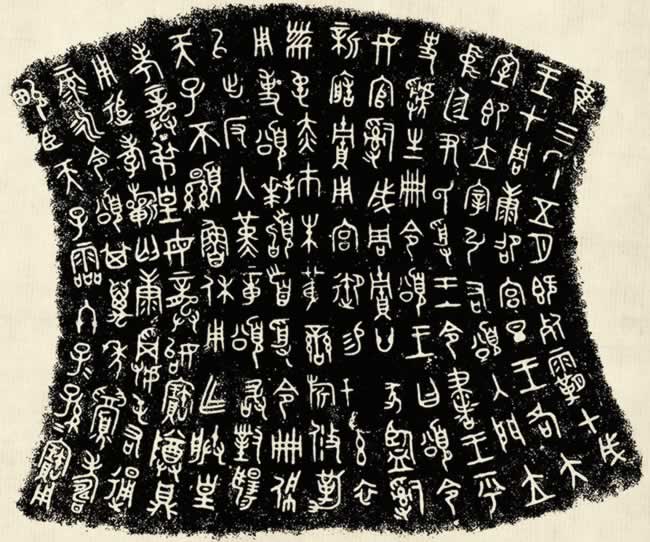 隹三年五月既死霸甲戌
王才周康卲宮旦王各大
室即立宰引右頌入門立
中廷尹氏受王令書王乎
史虢生冊令頌王曰頌令
女官𤔲成周貯廿家監𤔲
新造貯用宮御易女玄衣
黹屯赤巿朱黃鑾旂攸勒
用事頌拜稽首受令冊佩
以出反入堇章頌敢對揚
天子不顯魯休用乍朕皇
考龏叔皇母龏姒寶尊鼎
用追孝祈匄康𩁹屯右通
彔永令頌其萬年眉壽
畯臣天子霝冬子孫寶用